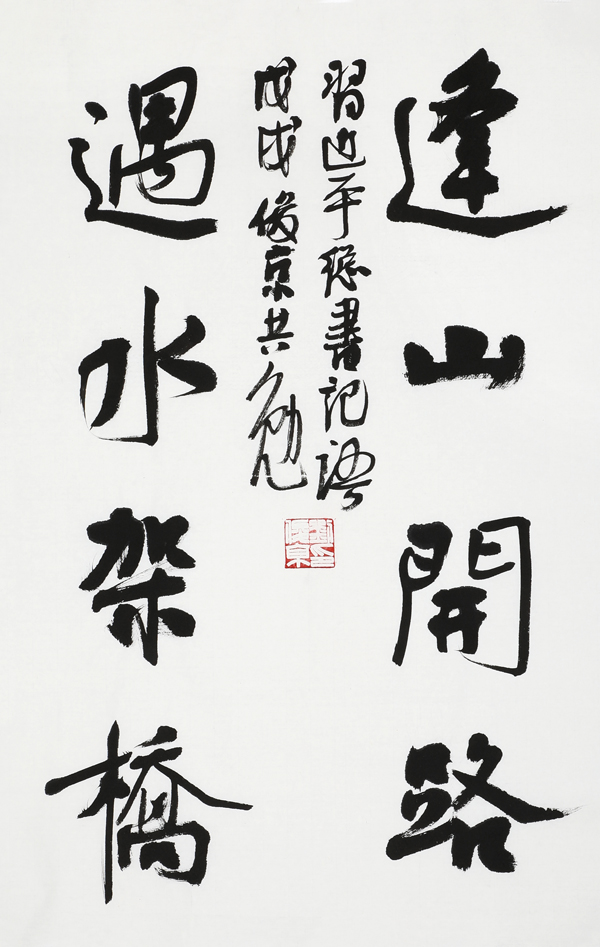 逢山開路
遇水架橋
習近平總書記語
戊戌俊京共勉
劉俊京印